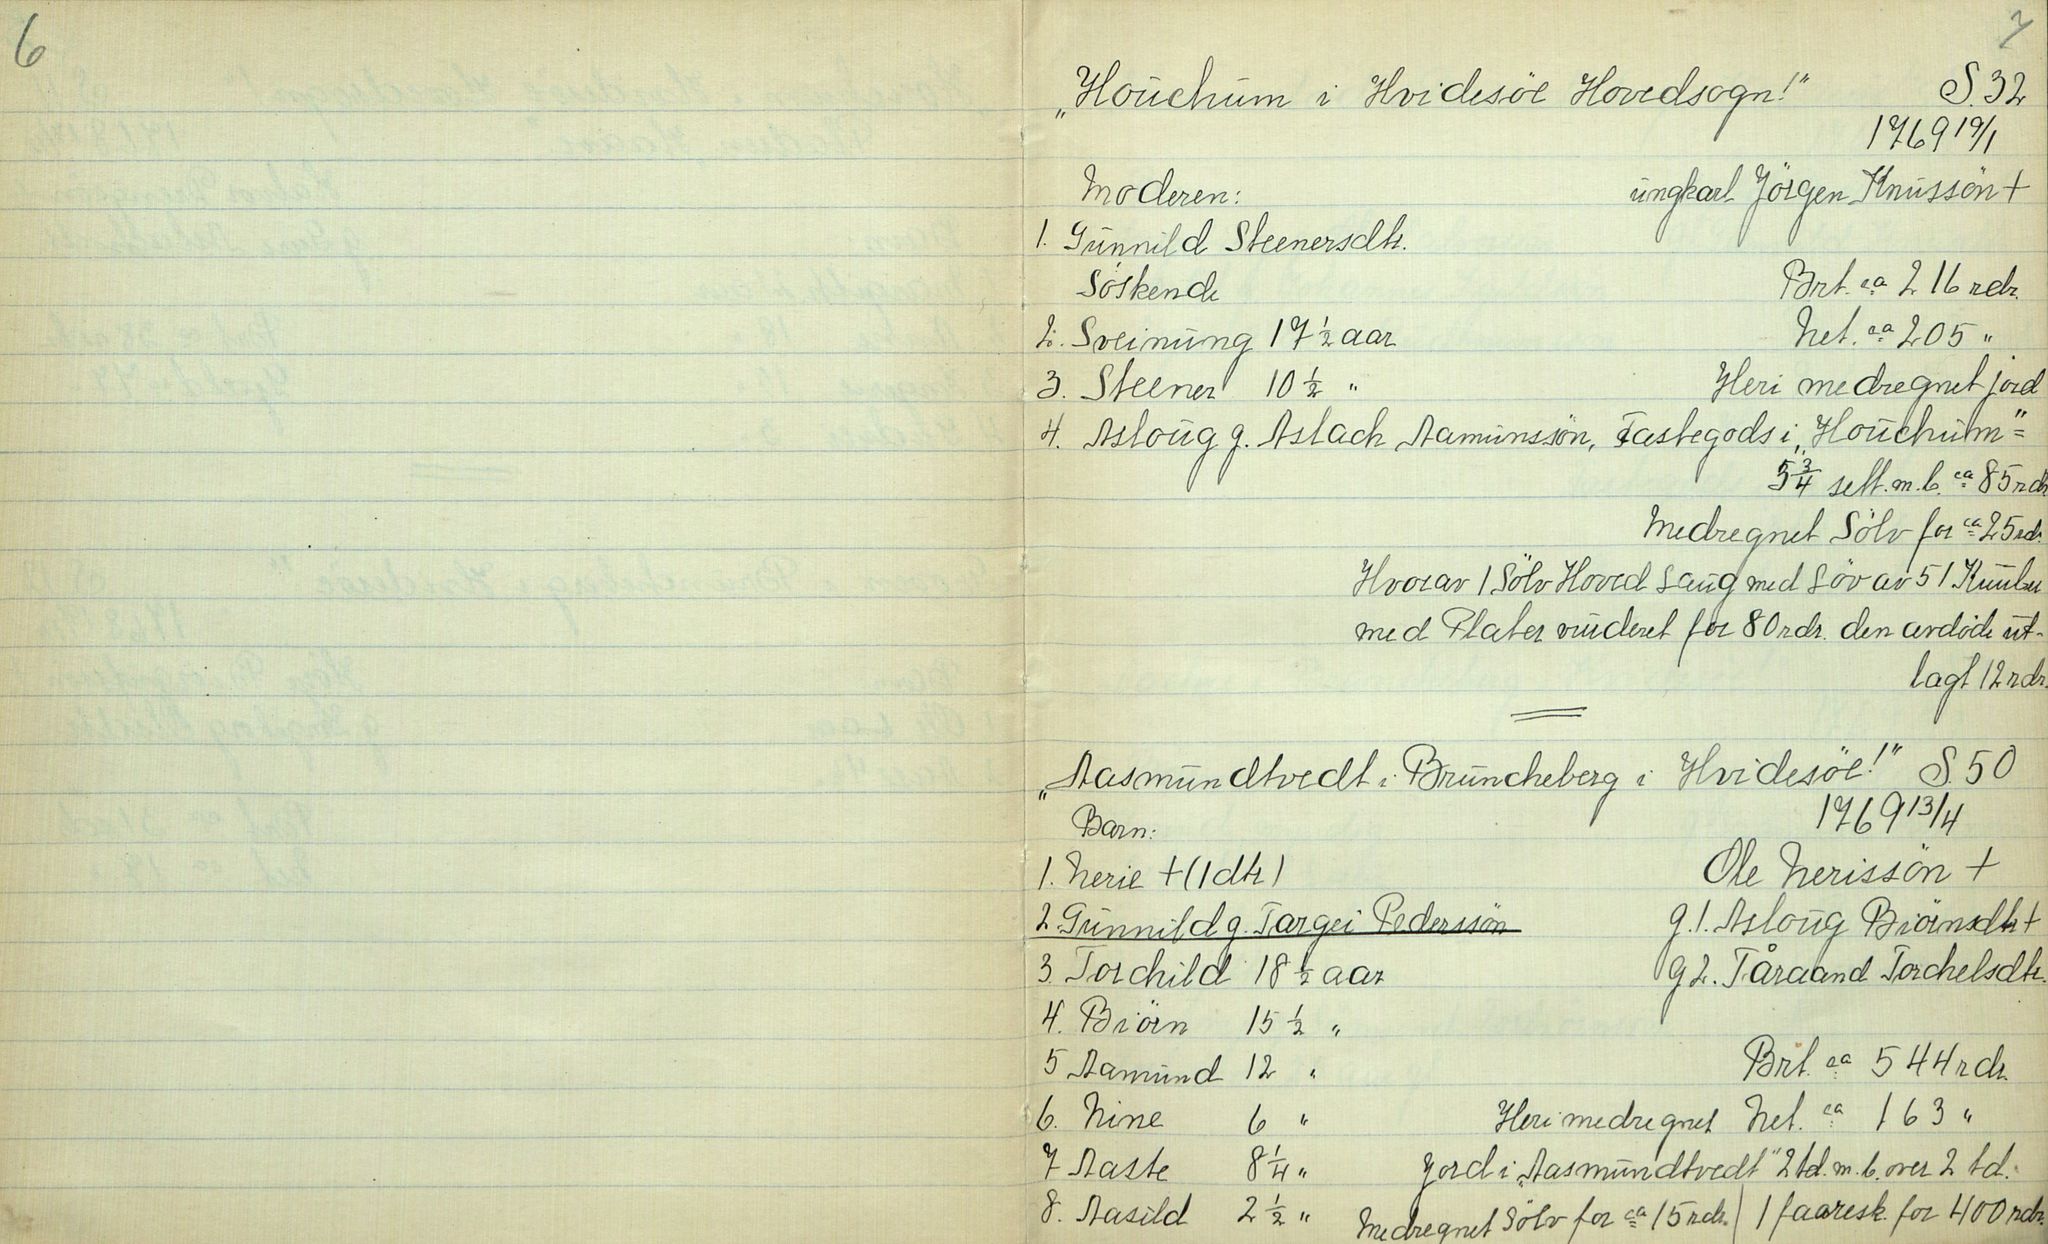 6
7
„Houchum i Hvidesöe Hovedsogn!" S. 32
1769 19/1
Moderen: ungkarl Jörgen Knussön +
1. Gunnild Steenersdtr.
Söskende Brt. ca 216 rdr.
2. Sveinung 17 1/2 aar Net. ca 205 "
3. Steener 10 1/2 " Heri medregnet jord
4. Asloug g. Aslach Aamunssön, Fastegods i „Houchum"=
5 3/4 sett. m. b. ca 85 rdr
Medregnet Sölv for ca 25 rdr.
Hvorav 1 Sölv Hoved Laug med Löv av 51
med Plater vuderet for 80 rdr. den avdöde ut-
lagt 12 rdr.
„Aasmundtvedt i Bruncheberg i Hvidesöe!" S. 50
1769 13/4
Barn:
1. Nerie + (1 dtr) Ole Nerissön +
2. Gunnild g. Targei Pederssön g. 1. Asloug Biörnsdtr +
3. Torchild 18 1/2 aar g 2. Tåraand Torchelsdtr.
4. Biörn 15 1/2 "
5 Aamund 12 " Brt. ca 544 rdr.
6. Nine 6 " Heri medregnet Net. ca 163 "
7 Aaste 8 1/4 " Jord i „Aasmundtvedt" 2 td. m. b. over 2 td.
8. Aasild 2 1/2 " Medregnet Sölv for ca 15 rdr. / 1 faaresk. for 400 rdr.